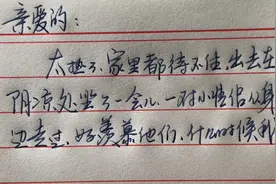 亲爱的：
太热了，家里都待不住，出去在
阴凉处坐了一会儿，一对小情侣从身
边走过，好羡慕他们，什么时候我